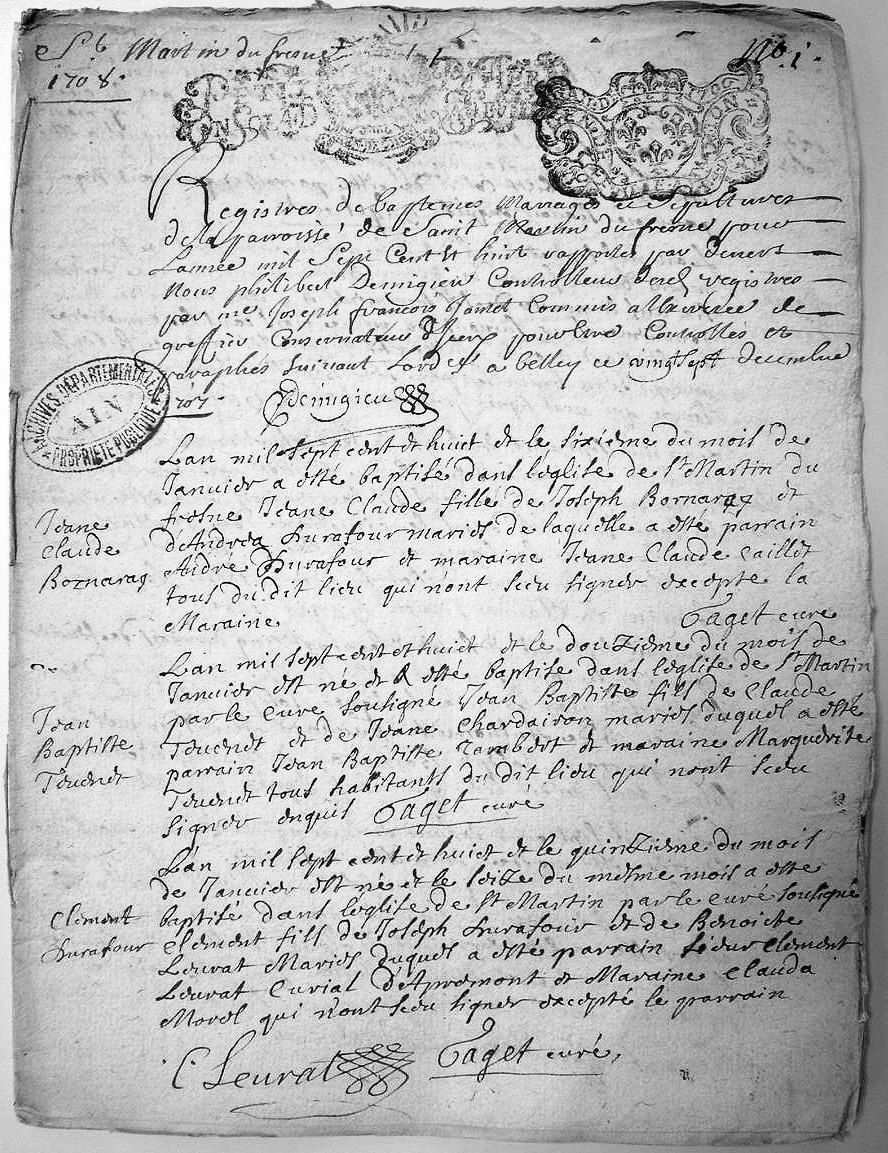 St Martin du fresne
1708.
No. 1.
PETIT
Registres de baptemes Mariages et Sepultures
de la parroisse de Saint Martin du fresne pour
Lannee mil Sept Cent et huit rapportes par devers
Nous philibert Demigieu Controlleur desd registres
par me Joseph françois Commis a lexercice de
greffier Conservateur diceux pour Estre Controlles et
paraphes Suivant Lordet a belley ce vingt Sept decembre
1707. Demigieu
ARCHIVES DEPARTEMENTALES
AIN
PROPRIETE PUBLIQUE
Lan mil sept cent et huict et le sixieme du mois de
Janvier a esté baptisé dans l'eglise de St Martin du
Jeane
Claude
Bornaras
fresne Jeane Claude fille de Joseph Bornaras et
d'Andrea Durafour mariés de laquelle a esté parrain
Aidré Durafour et maraine Jeane Claude caillet
tous du dit lieu qui n'ont sceu signer excepte la
Maraine Taget curé
Lan mil sept cent et huict et le douzieme du mois de
Janvier est né et a esté baptise dans l'eglise de St Martin
Jean
Baptiste
Tevenet
par le curé soutigné Jean Baptiste fils de Claude
Tevenet et de Jeane Chardairon mariés duquel a esté
parrain Jean Baptiste Jambert et maraine Marguerite
Tevenet tous habitants du dit lieu qui nont sceu
signer enquis Taget curé
L'an mil sept cent et huict et le quinzieme du mois
de Janvier est né et le seize du mesme mois a esté
Clement
Durafour
baptisé dans l'eglise de St Martin par le curé soutigné
Clement fils de Joseph Durafour et de Benoicte
Leurat Mariés duquel a esté parrain Sieur Clement
Leurat Curial d'Apremont et Maraine Clauda
Morel qui n'ont sceu signer excepté le parrain
C Leurat Taget curé,